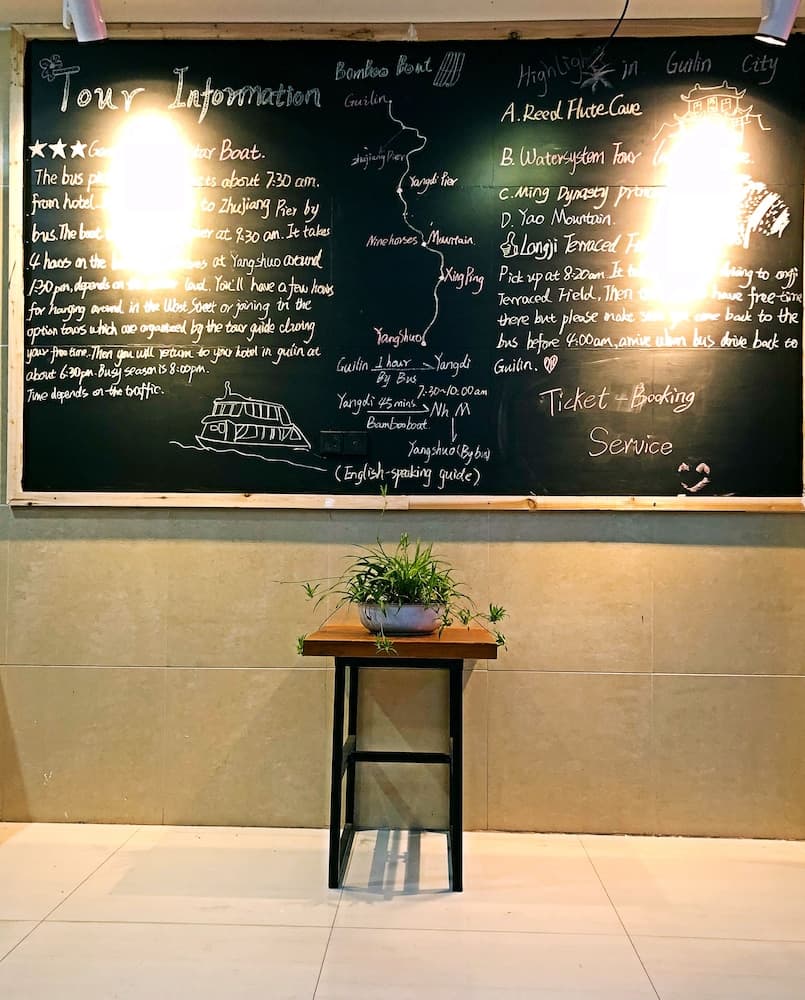 Tour Information
★★★ Boat.
The bus about 7:30 am.
from hotel to Zhujiang Pier by
bus. The boat at 9:30 am. It takes
4 hours on the at Yangshuo around
1:30 pm, depends on the level. You'll have a few hours
for hanging around in the West Street or joining in the
option tours which are organized by the tour guide during
your free time. Then you will return to your hotel in guilin at
about 6:30pm. Busy season is 8:00pm.
Time depends on the traffic.
Bamboo Boat
Guilin
Zhujiang Pier
Yangdi Pier
Ninehorses Mountain
XingPing
Yangshuo
Guilin 1 hour Yangdi
By Bus
7:30~10:00am
Yangdi 45 mins Nh M
Bamboo boat
Yangshuo (By bus)
(English-speaking guide)
Highlights in Guilin City
A. Reed Flute Cave
B. Watersystem Tour
C. Ming Dynasty
D. Yao Mountain.
Longji Terraced
Pick up at 8:20am. It to
Terraced Field. Then have free time
there but please make come back to the
bus before 4:00am, bus drive back to
Guilin.
Ticket-Booking
Service